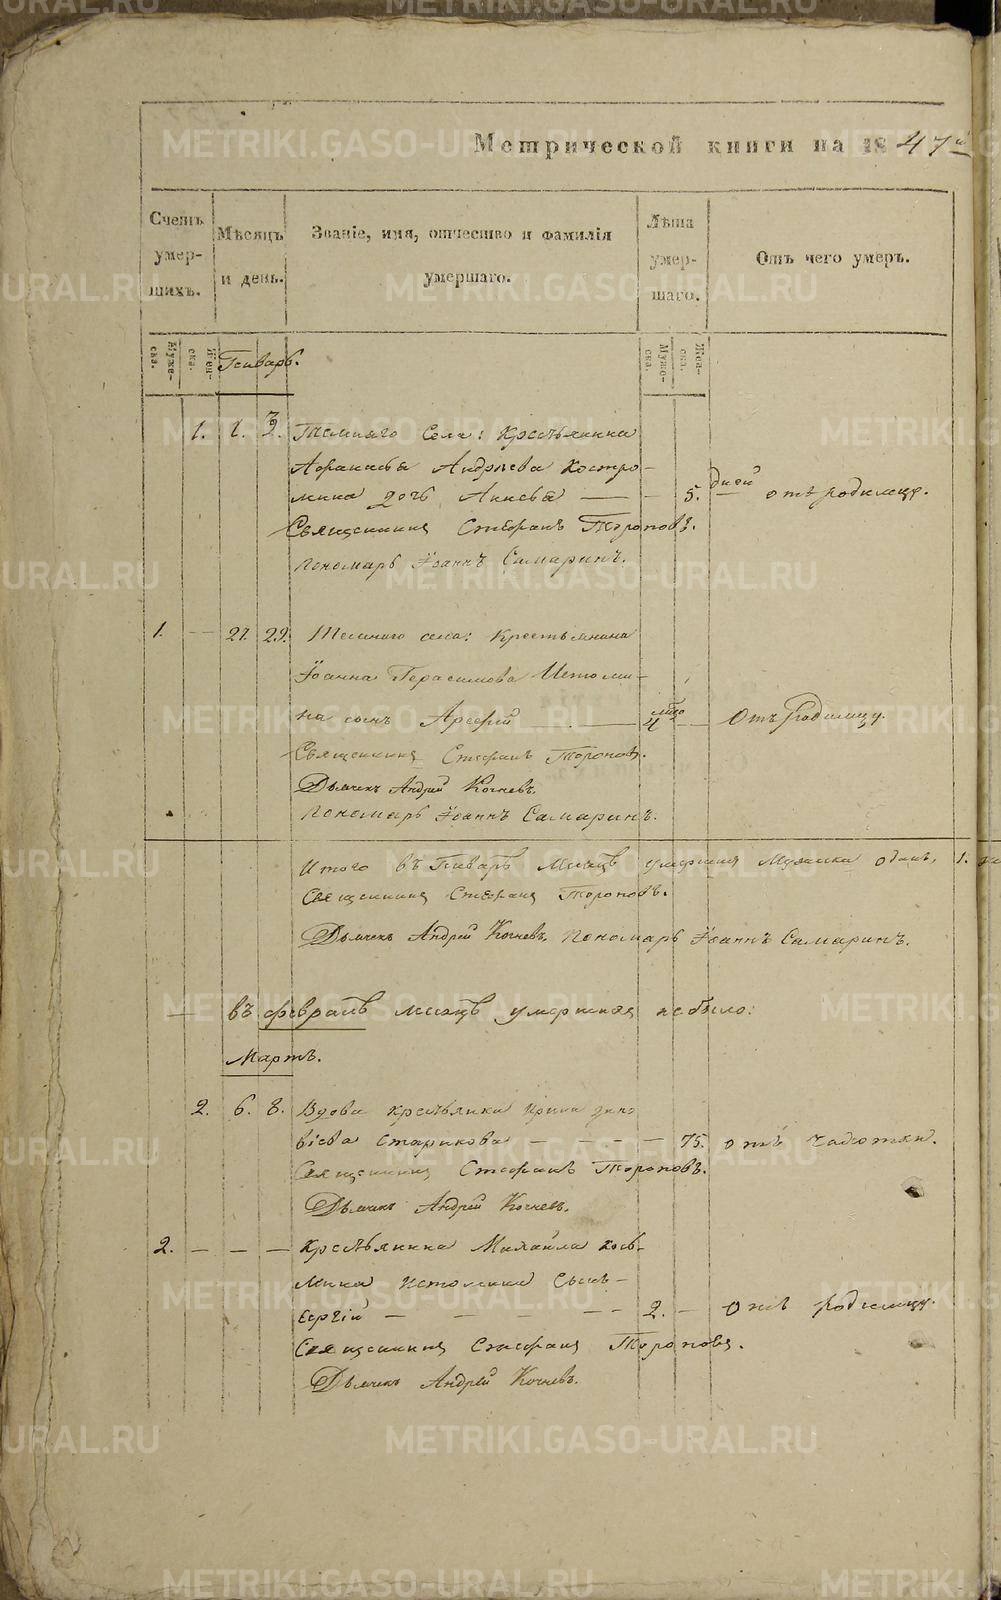 Метрической книги на 1847й
Счетъ умер- шихъ.
Мѣсяцъ и день.
Званіе, имя, отчество и фамилія умершаго.
Лѣта умер- шаго.
Отъ чего умеръ.
Муже- ска.
Жен- ска.
Муже- ска.
Жен- ска.
Генварь.
1. 1. 3. Темняго Села: Крестьянина
Афанасья Андреева Костро-
мина дочь 5. дней отъ родимцу.
Священникъ Стефанъ Тороповъ.
Пономарь Іоаннъ Самаринъ.
1. — 27. 29. села: Крестьянина
Іоанна Герасимова Истоми-
на сынъ 4 Отъ Родимцу.
Священникъ Стефанъ Тороповъ.
Дьячекъ Андрей Кочневъ.
Пономарь Іоаннъ Самаринъ.
Итого въ Генварѣ Месяцѣ умершихъ Мужеска одинъ, 1.
Священникъ Стефанъ Тороповъ.
Дьячекъ Андрей Кочневъ, Пономарь Іоаннъ Самаринъ.
— въ февралѣ месяцѣ умершихъ небыло:
Мартъ.
2. 6. 8. Вдова крестьянка Ирина Зино
віева Старикова — — — — 75. отъ чахотки.
Священникъ Стефанъ Тороповъ.
Дьячекъ Андрей Кочневъ.
2. — — — Крестьянина Михаила Козь-
мина Истомина Сынъ —
Сергій — — — — — 2. — Отъ родимцу.
Священникъ Стефанъ Тороповъ.
Дьячекъ Андрей Кочневъ.
METRIKI.GASO-URAL.RU